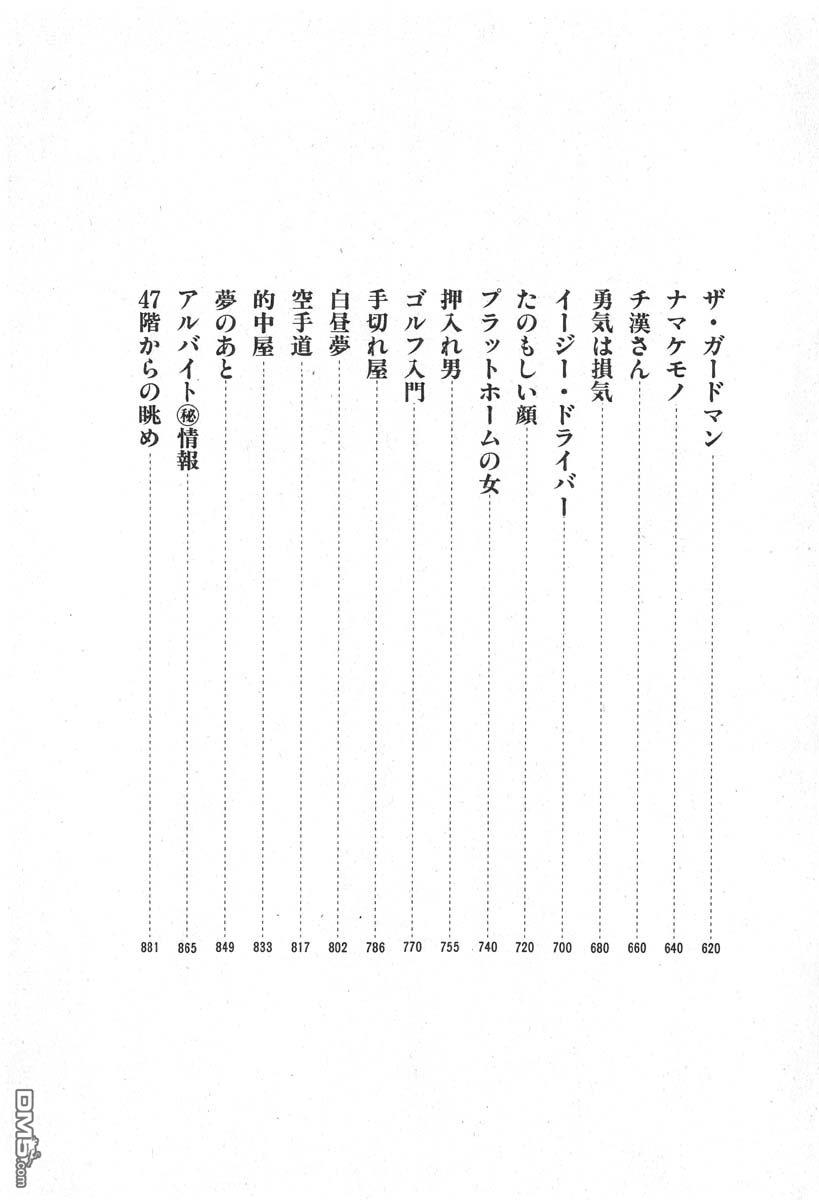 ザ・ガードマン 620
ナマケモノ 640
チ漢さん 660
勇気は損気 680
イージー・ドライバー 700
たのもしい顔 720
プラットホームの女 740
押入れ男 755
ゴルフ入門 770
手切れ屋 786
白昼夢 802
空手道 817
的中屋 833
夢のあと 849
アルバイト㊙情報 865
47階からの眺め 881
DM5.com